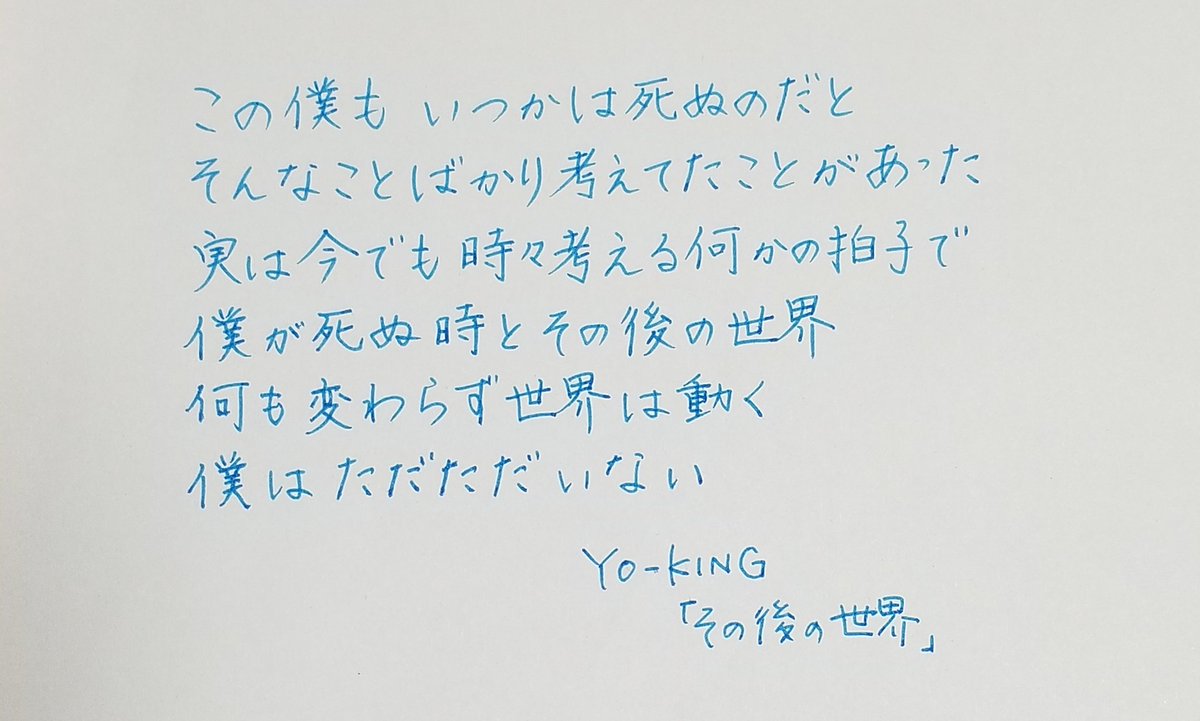 この僕も いつかは死ぬのだと
そんなことばかり考えてたことがあった
実は今でも時々考える何かの拍子で
僕が死ぬ時とその後の世界
何も変わらず世界は動く
僕はただただいない
YO-KING
「その後の世界」